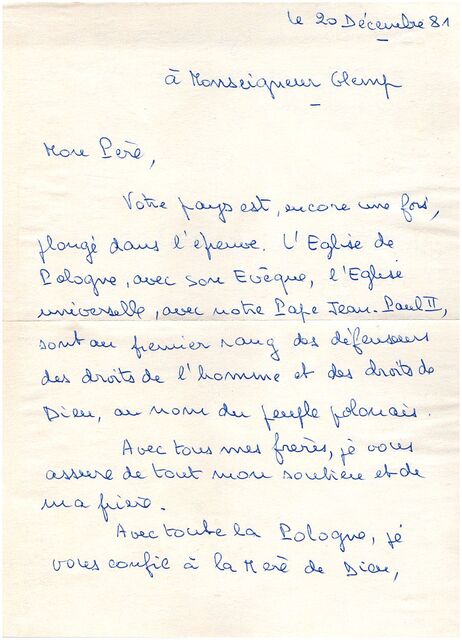 le 20 Décembre 81
à Monseigneur Glemp
Mon Père,
Votre pays est, encore une fois,
plongé dans l'épreuve. L'Eglise de
Pologne, avec son Evêque, l'Eglise
universelle, avec notre Pape Jean-Paul II,
sont au premier rang des défenseurs
des droits de l'homme et des droits de
Dieu, au nom du peuple polonais.
Avec tous mes frères, je vous
assure de tout mon soutien et de
ma prière.
Avec toute la Pologne, je
vous confie à la Mère de Dieu,